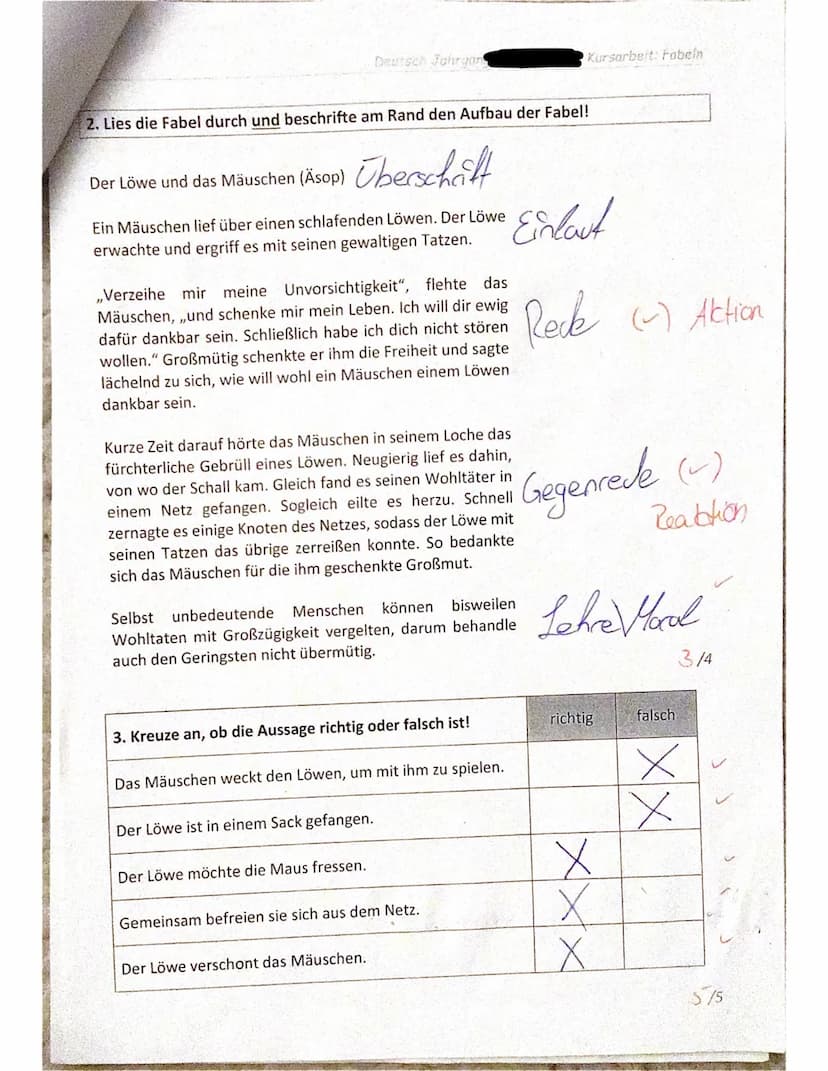 Deutsch Jahrgan Kursarbeit: Fabeln
2. Lies die Fabel durch und beschrifte am Rand den Aufbau der Fabel!
Der Löwe und das Mäuschen (Äsop) Überschrift
Ein Mäuschen lief über einen schlafenden Löwen. Der Löwe
erwachte und ergriff es mit seinen gewaltigen Tatzen.
Einlaut
„Verzeihe mir meine Unvorsichtigkeit“, flehte das
Mäuschen, „und schenke mir mein Leben. Ich will dir ewig
dafür dankbar sein. Schließlich habe ich dich nicht stören
wollen.“ Großmütig schenkte er ihm die Freiheit und sagte
lächelnd zu sich, wie will wohl ein Mäuschen einem Löwen
dankbar sein.
Rede (✓) Aktion
Kurze Zeit darauf hörte das Mäuschen in seinem Loche das
fürchterliche Gebrüll eines Löwen. Neugierig lief es dahin,
von wo der Schall kam. Gleich fand es seinen Wohltäter in
einem Netz gefangen. Sogleich eilte es herzu. Schnell
zernagte es einige Knoten des Netzes, sodass der Löwe mit
seinen Tatzen das übrige zerreißen konnte. So bedankte
sich das Mäuschen für die ihm geschenkte Großmut.
Gegenrede (✓)
Reaktion
Selbst unbedeutende Menschen können bisweilen
Wohltaten mit Großzügigkeit vergelten, darum behandle
auch den Geringsten nicht übermütig.
Lehre\Moral ✓
3/4
3. Kreuze an, ob die Aussage richtig oder falsch ist! richtig falsch
Das Mäuschen weckt den Löwen, um mit ihm zu spielen. X ✓
Der Löwe ist in einem Sack gefangen. X ✓
Der Löwe möchte die Maus fressen. X ✓
Gemeinsam befreien sie sich aus dem Netz. X ✓
Der Löwe verschont das Mäuschen. X ✓
5/5